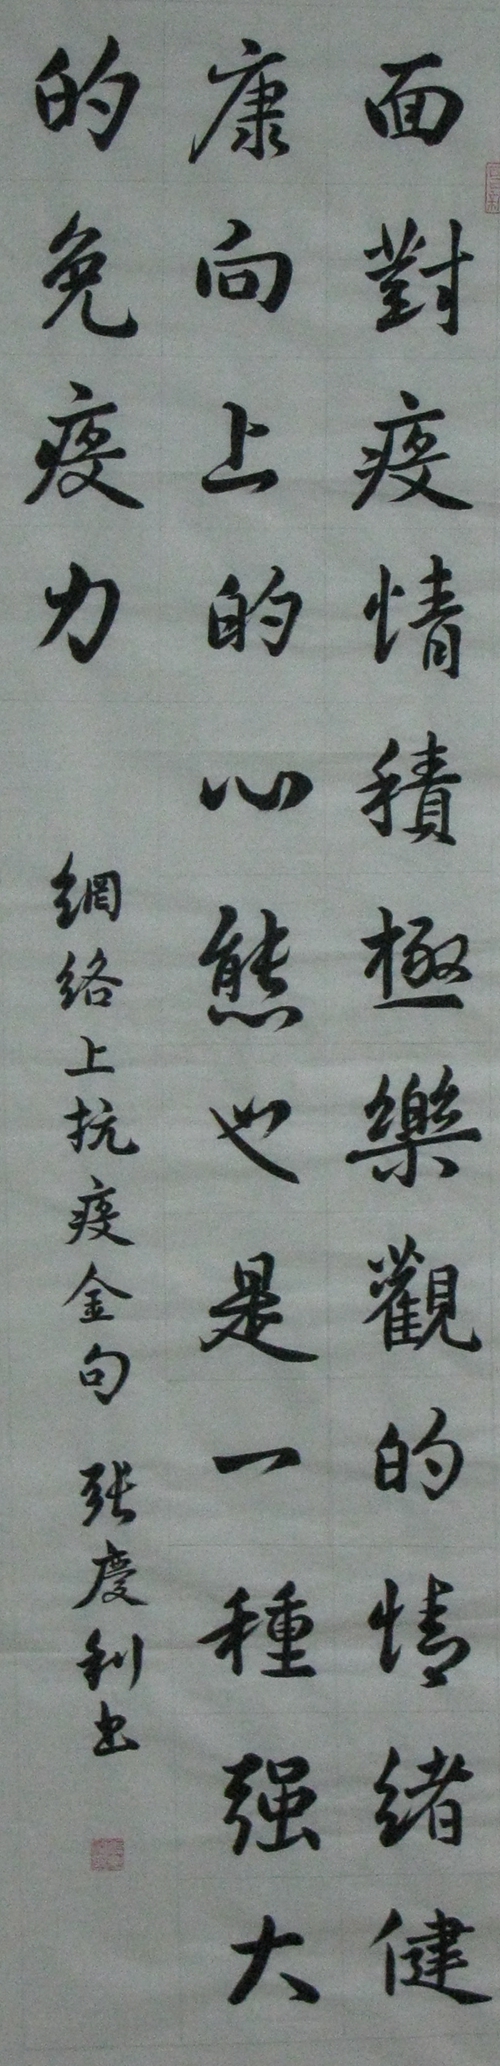 面對疫情積極樂觀的情緒健
康向上的心態也是一種强大
的免疫力
網絡上抗疫金句 張慶利书